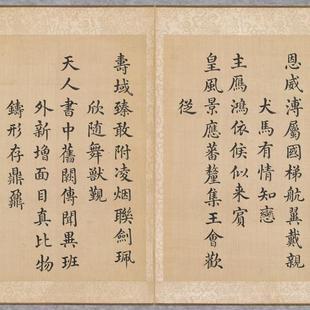 恩威溥屬國梯航翼戴親
犬馬有情知戀
主鴈鴻依候似来賓
皇風景應蕃釐集王會歡
從
壽域臻敢附凌烟聯劍珮
欣随舞獸覲
天人書中舊闕傳聞異班
外新增面目真比物
鑄形存鼎鼐